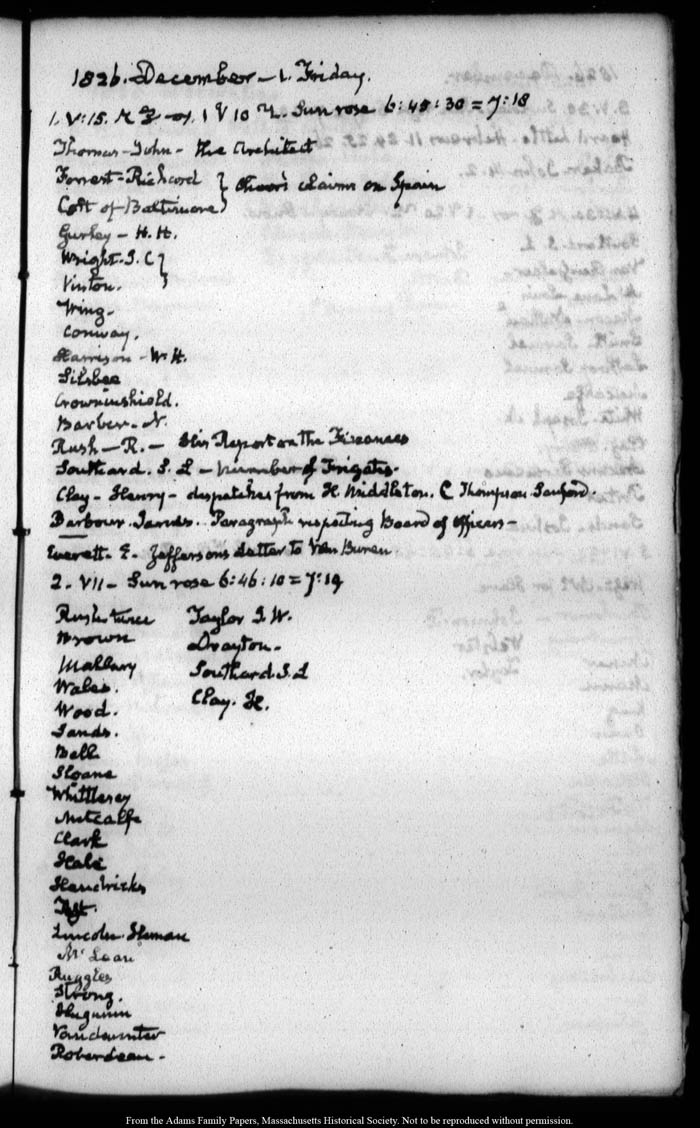 1826. December - 1. Friday.
1. V:15. Sun rose 6:45:30 = 7:18
Thomas - John - the Architect
Forrest - Richard } claims on Spain
Colt of Baltimore }
Gurley - H. H.
Wright. S. C }
Vinton. }
Wing -
Conway.
Harrison - W. H.
Silsbee
Crowninshield.
Barber - N.
Rush - R. - His Report on the Finances
Southard. S. L - number of Frigates -
Clay - Henry - despatches from H. Middleton. C Thompson Sanford.
Barbour. James. Paragraph respecting Board of Officers -
Everett - E. Jeffersons Letter to Van Buren
2. VII - Sun rose 6:46:10 = 7:19
Rush twice Taylor J. W.
Brown Drayton -
Mallary Southard. S. L
Wales. Clay. H.
Wood.
Sands.
Bell
Sloane
Whittlesey
Metcalfe
Clark
Hale
Hendricks
Lincoln. Heman
McLean
Ruggles
Strong.
Hugunin
Vandeventer
Roberdeau -
From the Adams Family Papers, Massachusetts Historical Society. Not to be reproduced without permission.